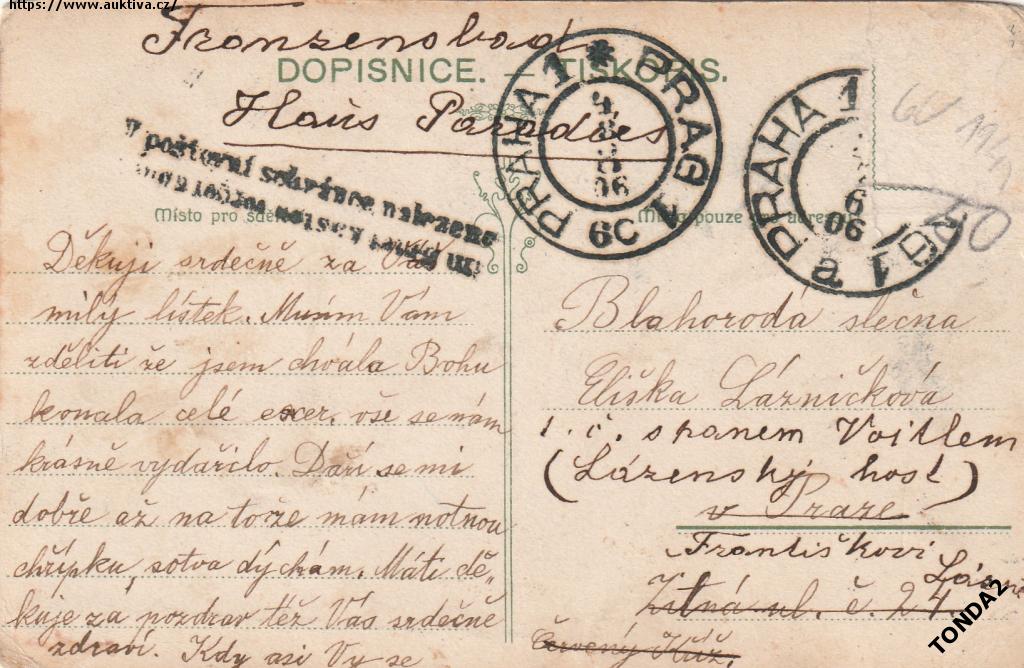 https://www.auktiva.cz/
Franzensbad
DOPISNICE. — TISKOPIS.
Haus Paradies
V poštovní schránce nalezeno
Im Brief
Místo pro sděl
Místo pouze pro adresu
PRAHA 1 * PRAG 1
4
8
8
06
6C
PRAHA 1
6
06
a
50
Děkuji srdečně za Váš
milý lístek. Musím Vám
zděliti že jsem chvála Bohu
konala celé excer. vše se nám
krásně vydařilo. Daří se mi
dobře až na to že mám notnou
chřipku, sotva dýchám. Máti dě-
kuje za pozdrav též Vás srdečně
zdraví. Kdy asi Vy se
Blahorodá slečna
Eliška Lázničková
t. č. s panem Voitlem
(Lázenský host)
v Praze
Františkovi Lázně
Žitná ul. č. 24.
Červený Kříž.
TONDA2